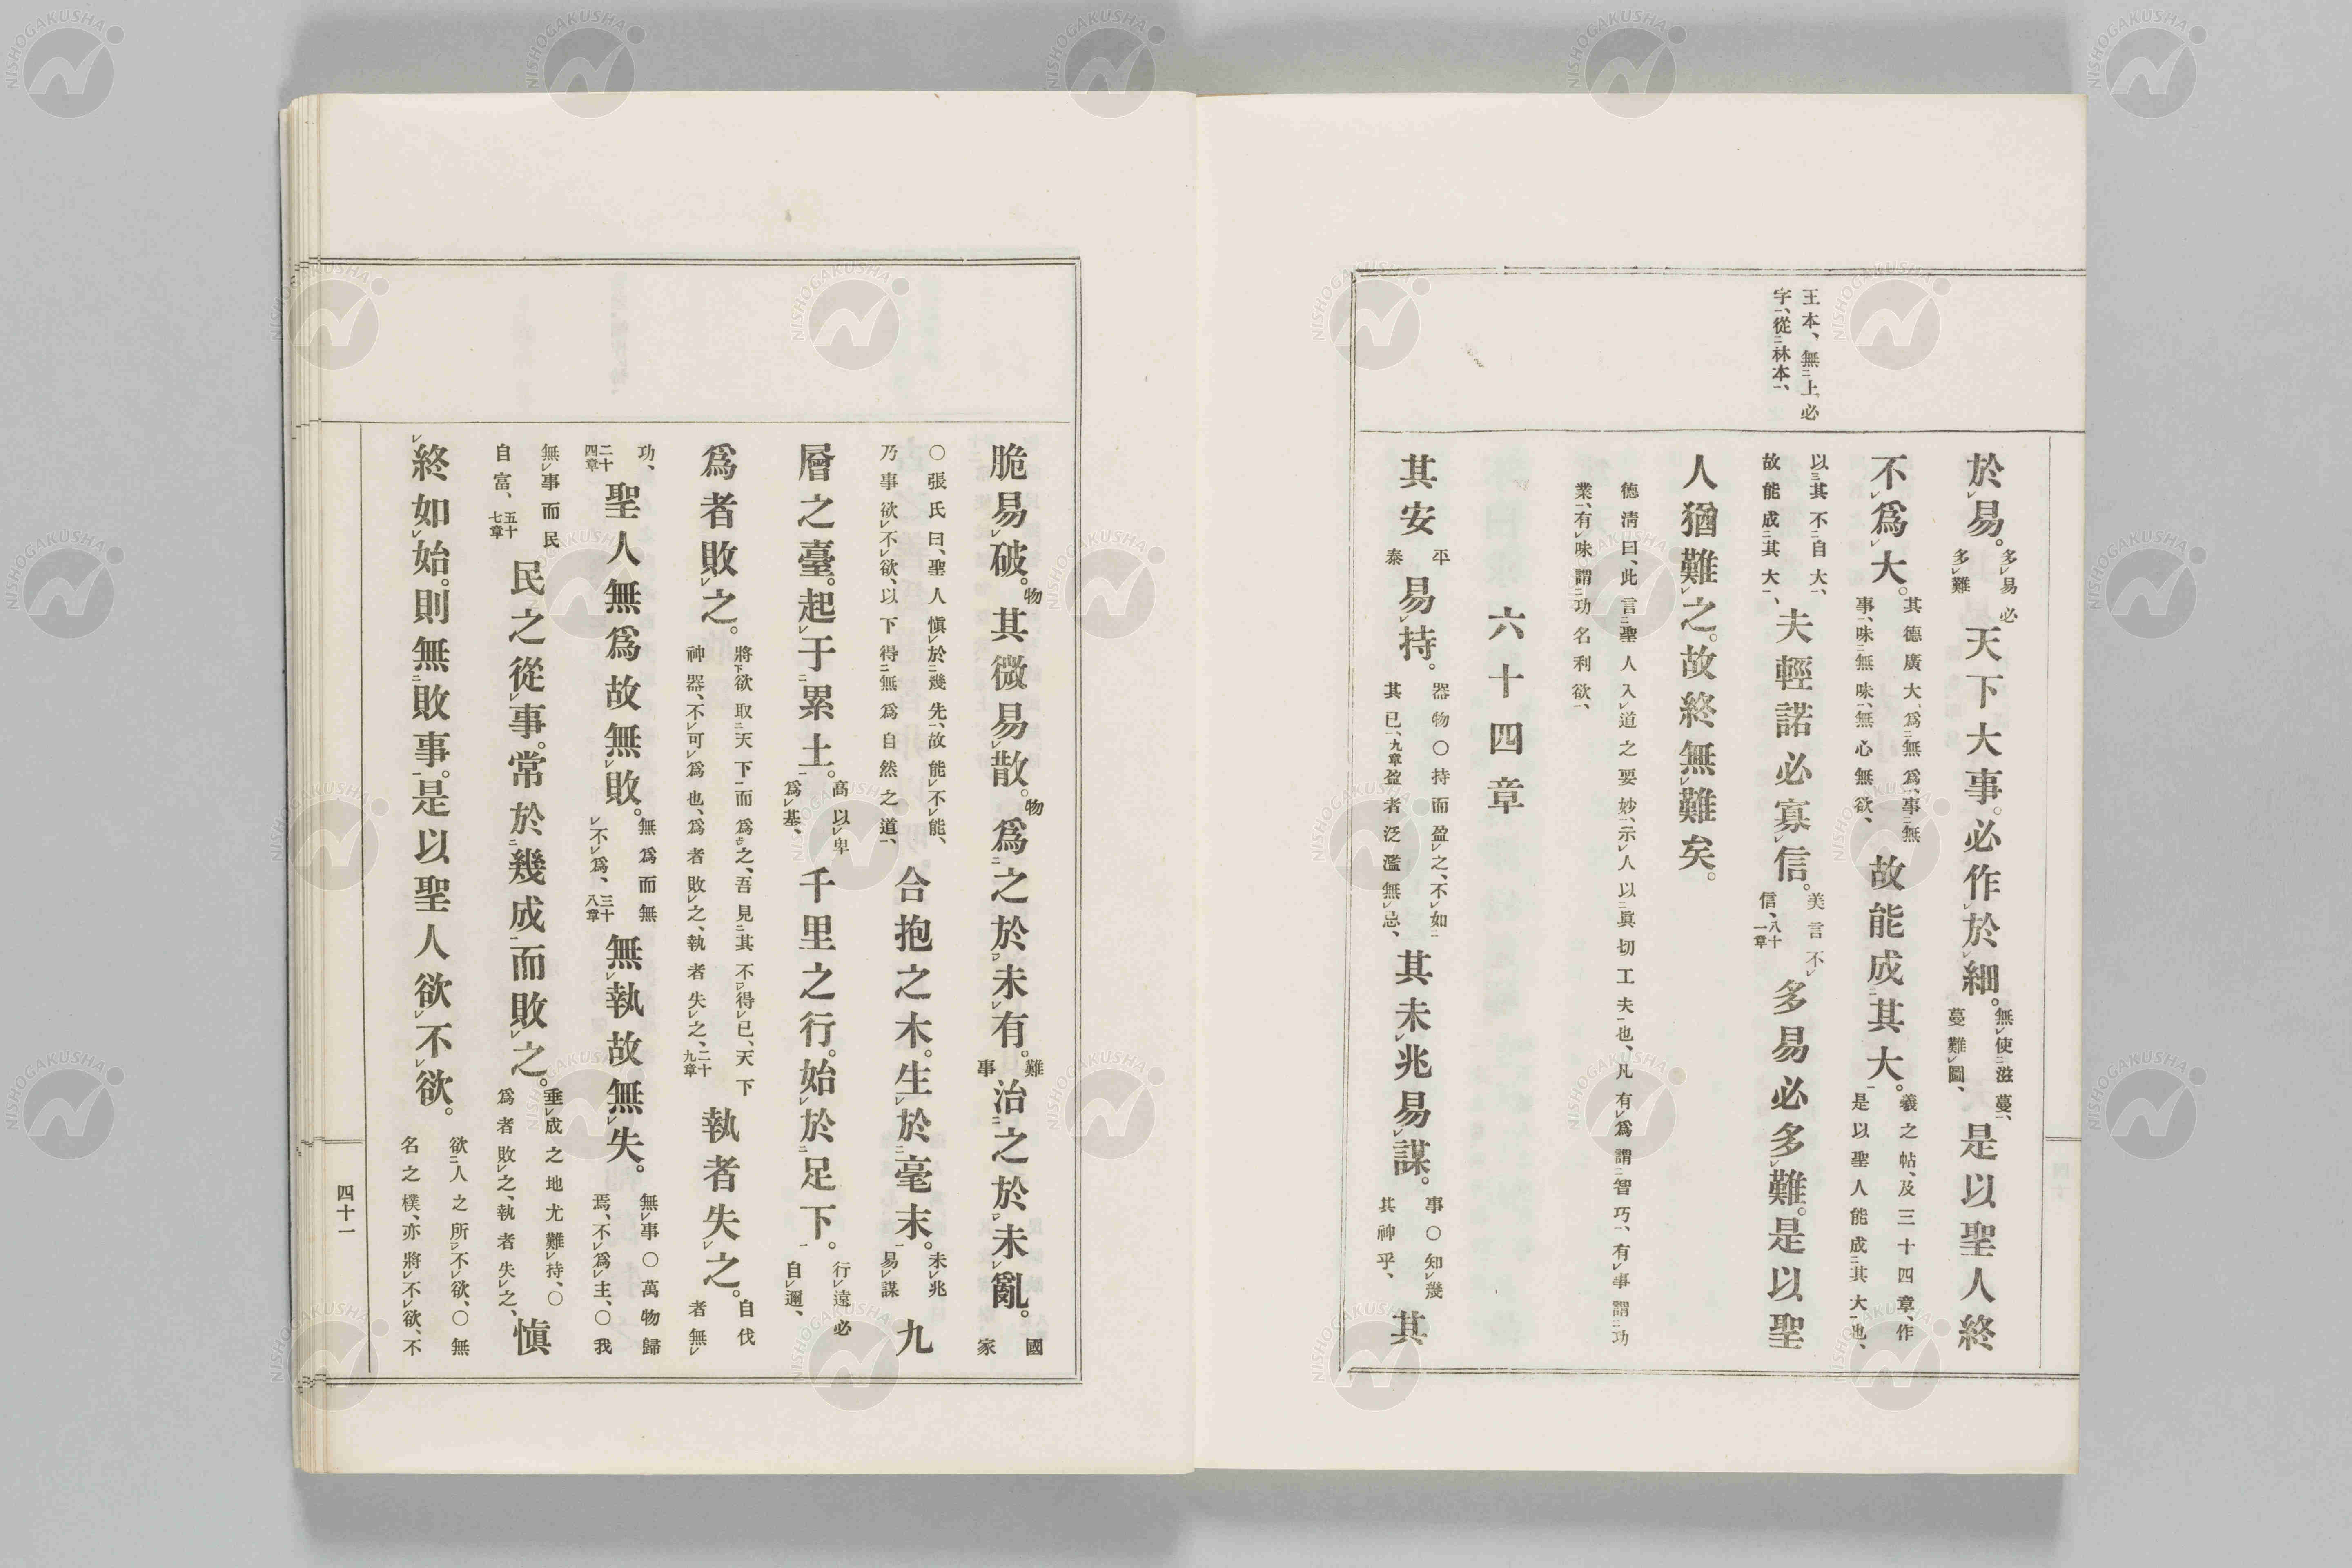 王本、無上必
字、從林本、
於易。多易必多難天下大事。必作於細。無使滋蔓、蔓難圖、是以聖人終
不爲大。其德廣大、爲無爲、事無事、味無味、無心無欲、故能成其大。羲之帖、及三十四章、作是以聖人能成其大也、
以其不自大、故能成其大、夫輕諾必寡信。美言不信、八十一章多易必多難。是以聖
人猶難之。故終無難矣。
德淸曰、此言聖人入道之要妙、示人以眞切工夫也、凡有爲謂智巧、有事謂功
業、有味謂功名利欲、
六十四章
其安平泰易持。器物○持而盈之、不如其已、九章盈者泛濫無忌、其未兆易謀。事○知幾其神乎、其
脆易破。物其微易散。物爲之於未有。難事治之於未亂。國家
○張氏曰、聖人愼於幾先、故能不能、乃事欲不欲、以下得無爲自然之道、合抱之木。生於毫末。未兆易謀九
層之臺。起于累土。高以卑爲基、千里之行。始於足下。行遠必自邇、
爲者敗之。將欲取天下而爲之、吾見其不得已、天下神器、不可爲也、爲者敗之、執者失之、二十九章執者失之。自伐者無
功、二十四章聖人無爲故無敗。無爲而無不爲、三十八章無執故無失。無事○萬物歸焉、不爲主、○我
無事而民自富、五十七章民之從事。常於幾成而敗之。垂成之地尤難持、○爲者敗之、執者失之、愼
終如始。則無敗事。是以聖人欲不欲。欲人之所不欲、○無名之樸、亦將不欲、不
四十一